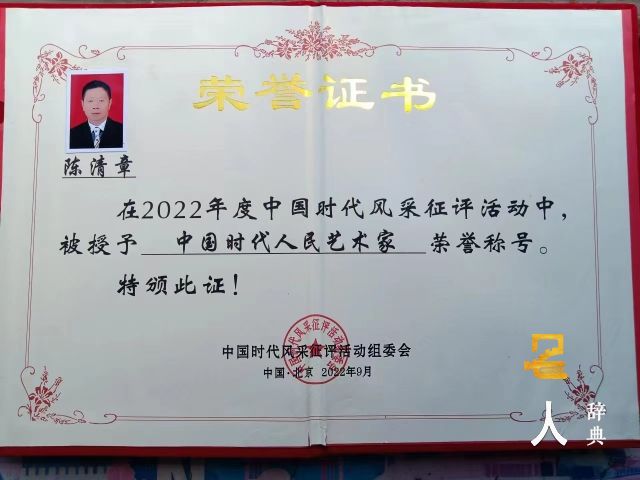 荣誉证书
陈清章
在2022年度中国时代风采征评活动中，
被授予 中国时代人民艺术家 荣誉称号。
特颁此证！
中国时代风采征评活动组委会
中国·北京 2022年9月
名人辞典